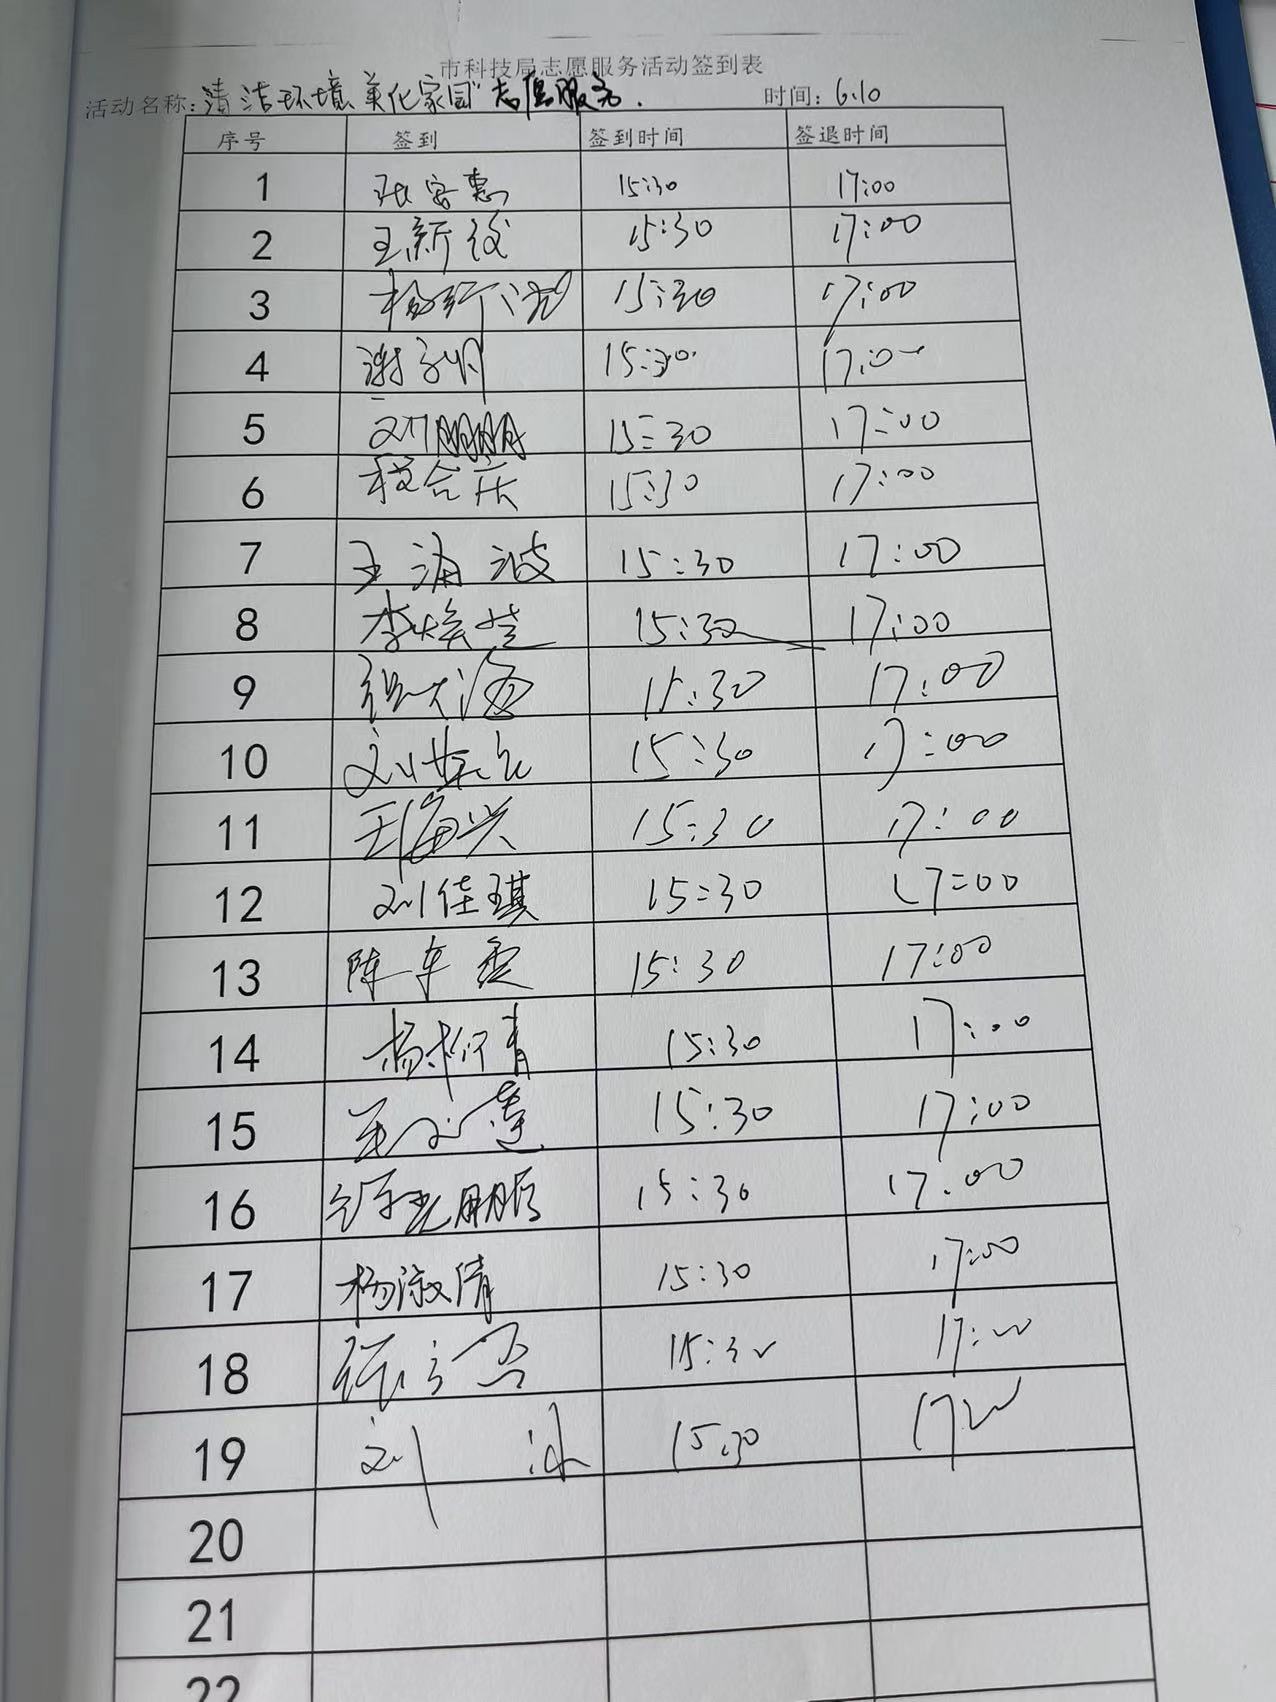 市科技局志愿服务活动签到表
活动名称:清洁环境 美化家园"志愿服务. 时间: 6.10
序号 签到 签到时间 签退时间
1 15:30 17:00
2 王新 15:30 17:00
3 杨 15:30 17:00
4 谢 15:30 17:00
5 刘鹏鹏 15:30 17:00
6 程合庆 15:30 17:00
7 王海波 15:30 17:00
8 李焕芝 15:30 17:00
9 张大海 15:30 17:00
10 刘 15:30 17:00
11 王海兴 15:30 17:00
12 刘佳琪 15:30 17:00
13 陈 15:30 17:00
14 杨柳青 15:30 17:00
15 15:30 17:00
16 15:30 17:00
17 杨淑倩 15:30 17:00
18 15:30 17:00
19 刘冰 15:30 17:00
20
21
22